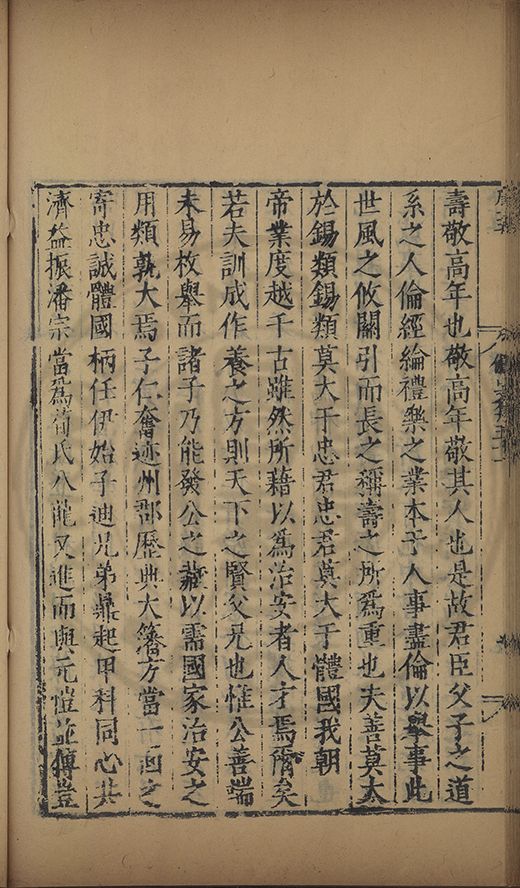 壽敬高年也敬高年敬其人也是故君臣父子之道
系之人倫經綸禮樂之業本乎人事盡倫以舉事此
世風之攸關引而長之稱壽之所爲重也夫善莫大
於錫類錫類莫大于忠君忠君莫大于體國我朝
帝業度越千古雖然所藉以爲治安者人才焉爾矣
若夫訓成作養之方則天下之賢父兄也惟公善端
未易枚舉而諸子乃能發公之藏以需國家治安之
用類孰大焉子仁奮迹州郡歷典大籓方當一面之
寄忠誠體國柄任伊始子迪兄弟鼎起甲科同心共
濟益振潘宗當爲荀氏八龍又進而與元愷並傳豈